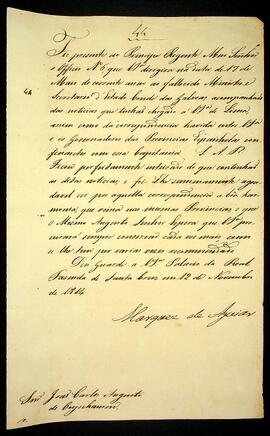 44
Foi presente ao Principe Regente Meu Senhor
o Officio N.º 6, que V.S.ª dirigio na data de 17 de
Maio do corrente anno ao fallecido Ministro e
Secretario d'Estado Conde das Galveas, acompanhado
das noticias que tinhão chegado a V.S.ª de Lima,
assim como da correspondencia havida entre V.S.ª
e os Governadores das Provincias Espanholas con-
finantes com essa Capitania. S. A. R.
Ficou perfeitamente inteirado do que continhão
as ditas noticias e foi-Lhe summamente agra-
davel ver por aquella correspondencia a boa har-
monia, que reina nas mesmas Provincias, e que
o Mesmo Augusto Senhor Espera que V.S.ª pro-
curará sempre conservar, como
se lhe tem por varias vezes recommendado.
Deos Guarde a V.S.ª Palacio da Real
Fazenda de Santa Cruz em 12 de Novembro
de 1814.
Marquez de Aguiar
Snr. João Carlos Augusto
de Oeynhausen.